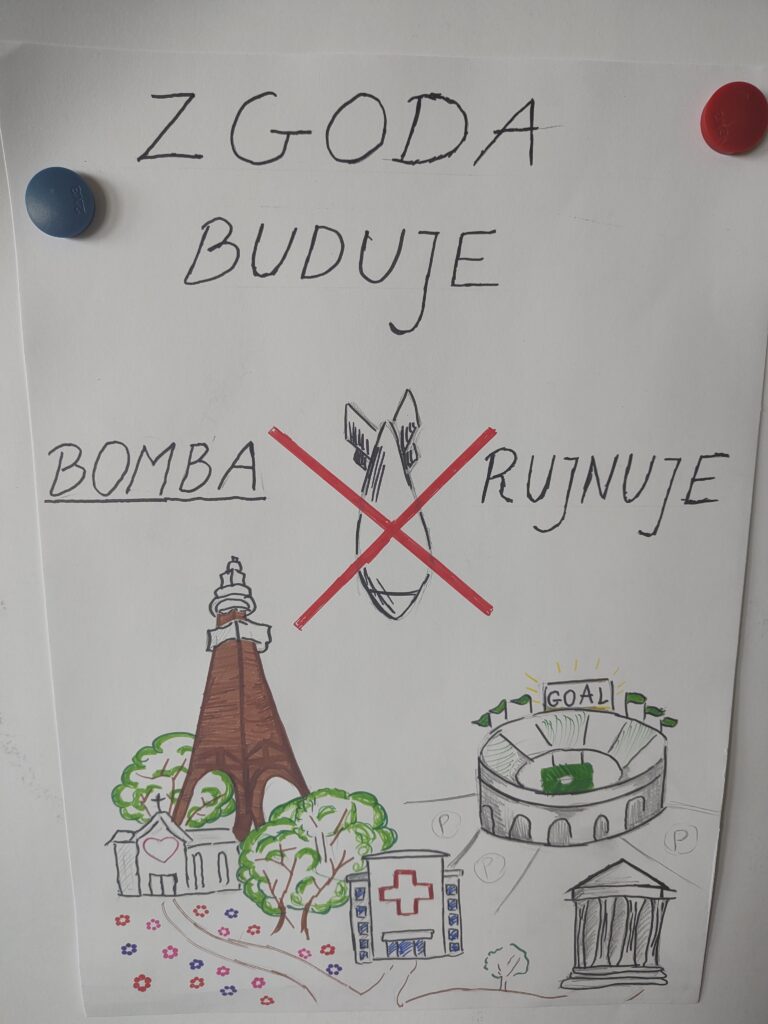 ZGODA
BUDUJE
BOMBA RUJNUJE
GOAL
P
P
P